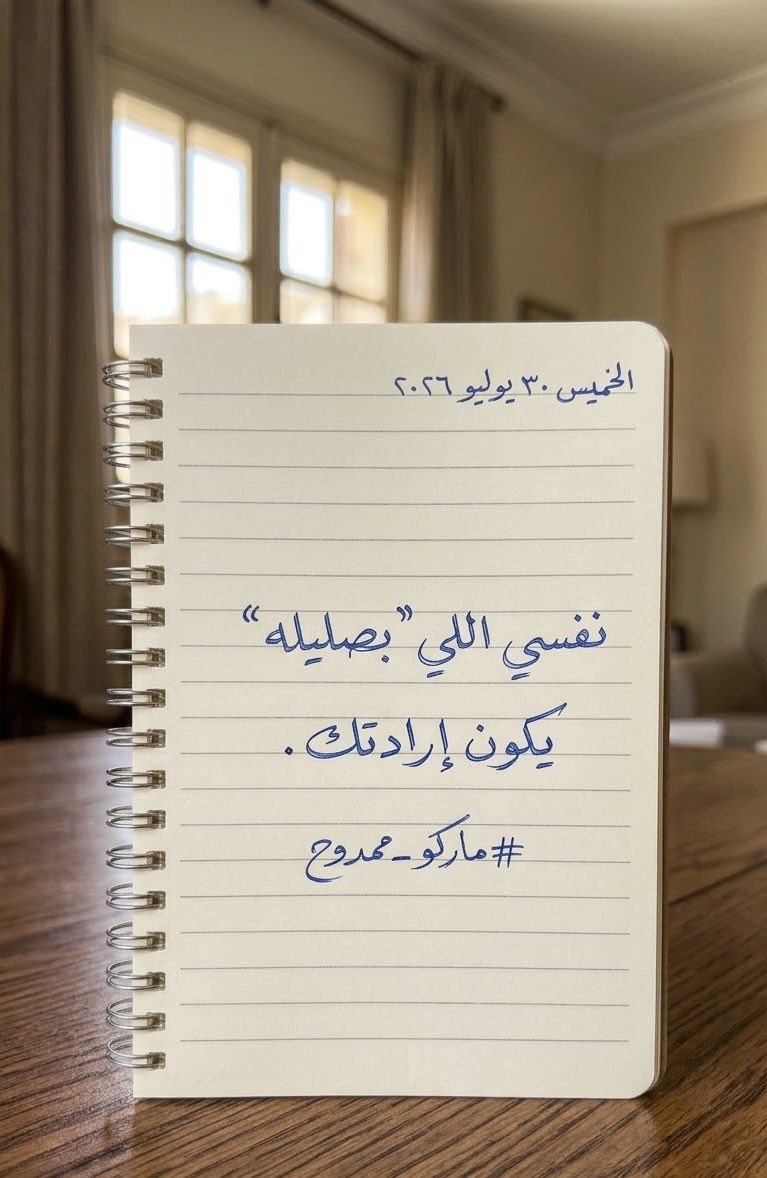 الخميس ٣٠ يوليو ٢٠٢٦
نفسي اللي "بصليله"
يكون إرادتك.
#ماركو_ممدوح